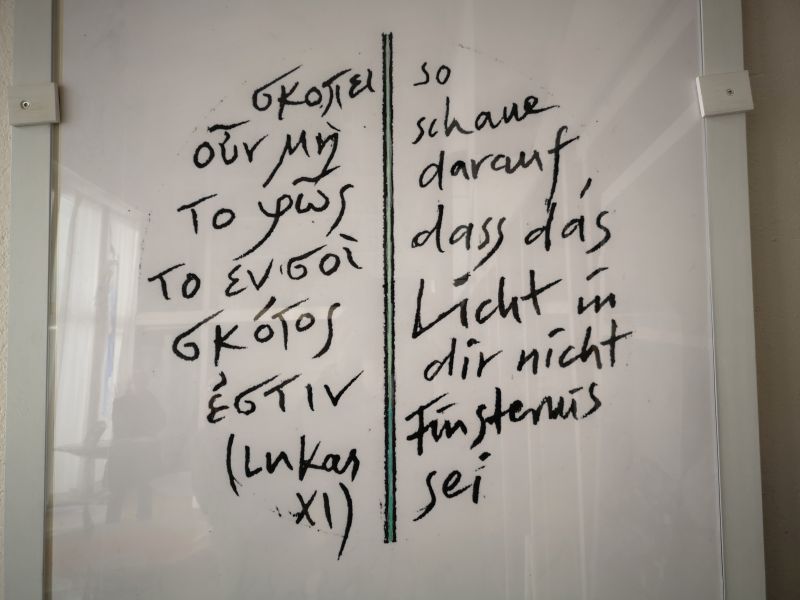 σκοπει
οὖν μὴ
το φῶς
το ἐν σοὶ
σκότος
ἐστιν
(Lukas
XI)
so
schaue
darauf
dass dás
Licht in
dir nicht
Finsternis
sei